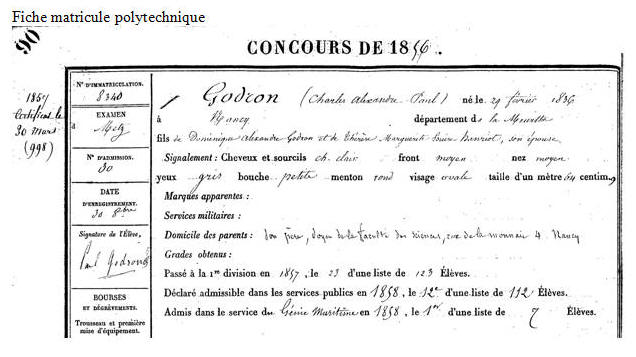 Fiche matricule polytechnique
90
CONCOURS DE 1856.
1857
Certificat le
30 mars
(998)
N° D'IMMATRICULATION.
8340
EXAMEN
à Metz
N° D'ADMISSION.
30
DATE
D'ENREGISTREMENT.
30 8bre
Signature de l'Élève.
Paul Godron
BOURSES
ET DÉGRÈVEMENTS.
Trousseau et première
mise d'équipement.
Godron (Charles Alexandre Paul) né le 29 février 1836
à Nancy département de la Meurthe
fils de Dominique Alexandre Godron et de Thérèse Marguerite Louise Henriot, son épouse
Signalement : Cheveux et sourcils ch. clair front moyen nez moyen
yeux gris bouche petite menton rond visage ovale taille d'un mètre 64 centim.
Marques apparentes :
Services militaires :
Domicile des parents : son père, doyen de la faculté des sciences, rue de la monnaie 4. Nancy
Grades obtenus :
Passé à la 1re division en 1857, le 23 d'une liste de 123 Élèves.
Déclaré admissible dans les services publics en 1858, le 12e d'une liste de 112 Élèves.
Admis dans le service du Génie Maritime en 1858, le 1er d'une liste de 7 Élèves.